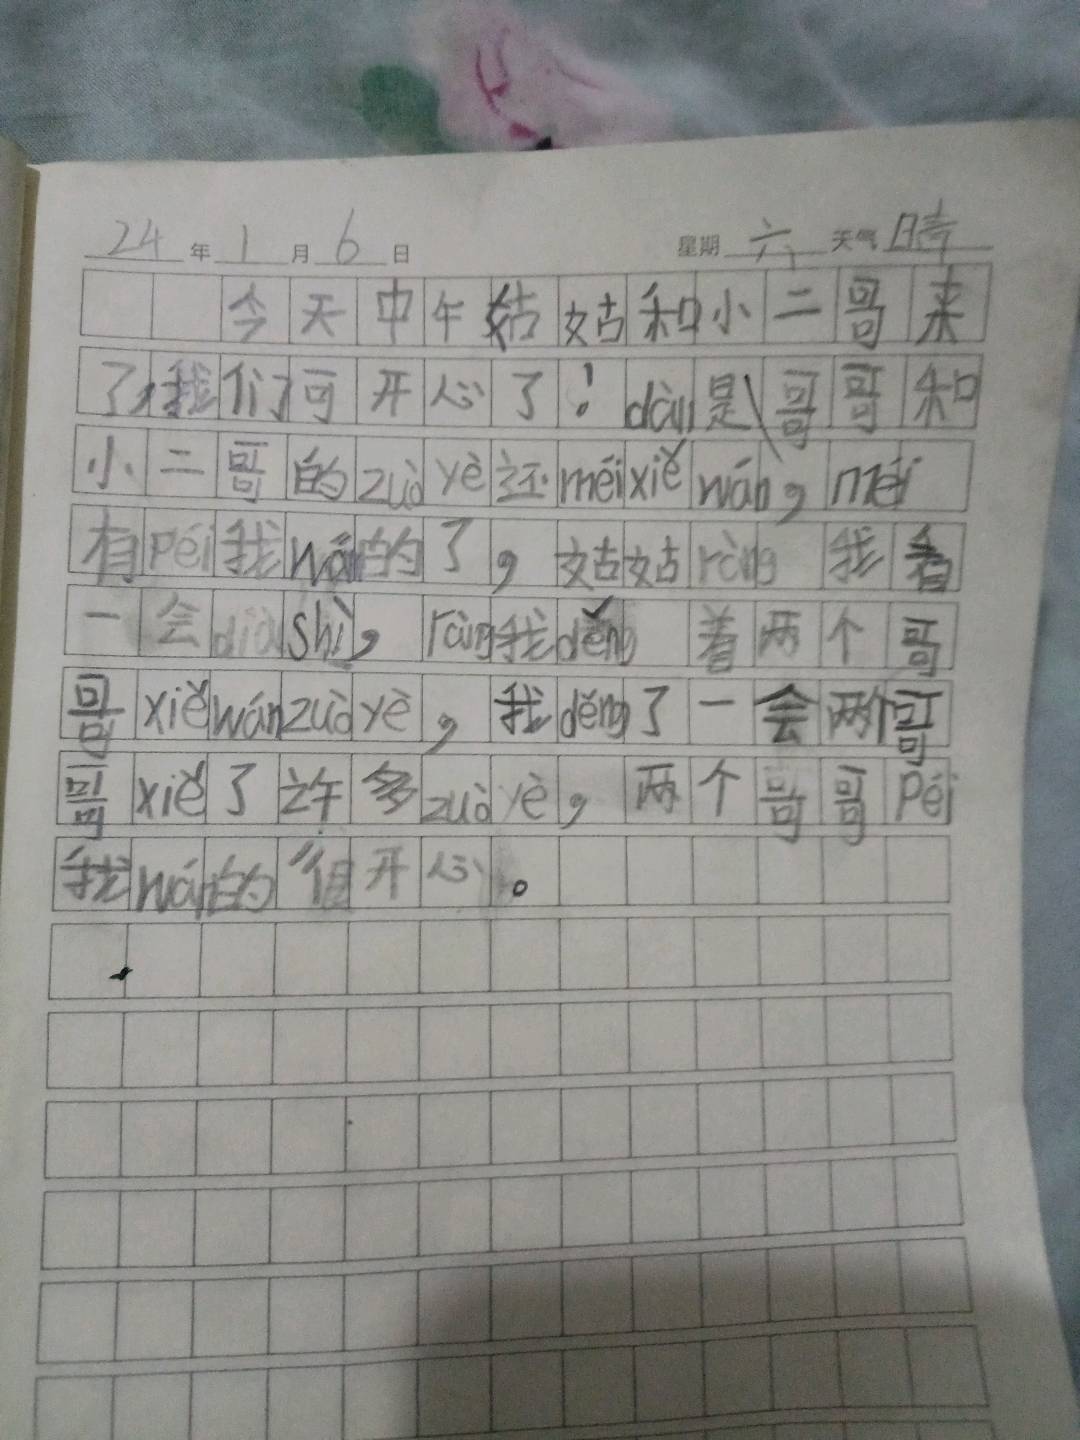 24年1月6日 星期六 天气晴
今天中午姑姑和小二哥来
了,我们可开心了!dàn是哥哥和
小二哥的zuòyè还méixiěwán,méi
有péi我wán的了,姑姑ràng我看
一会diàshì,ràng我děng着两个哥
哥xiěwánzuòyè,我děng了一会两个哥
哥xiě了许多zuòyè,两个哥哥péi
我wán的很开心。